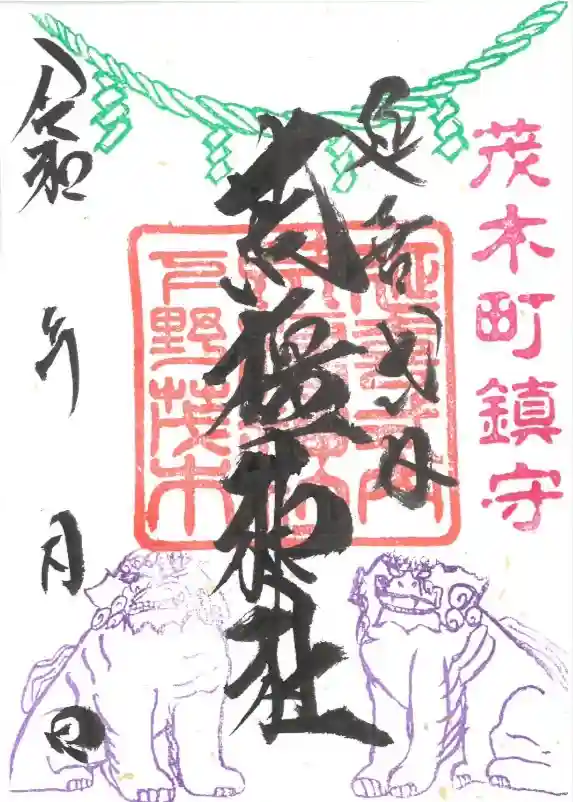 茂木町鎮守
延喜式内
荒橿神社
令和 年 月 日
延喜式内
下野茂木